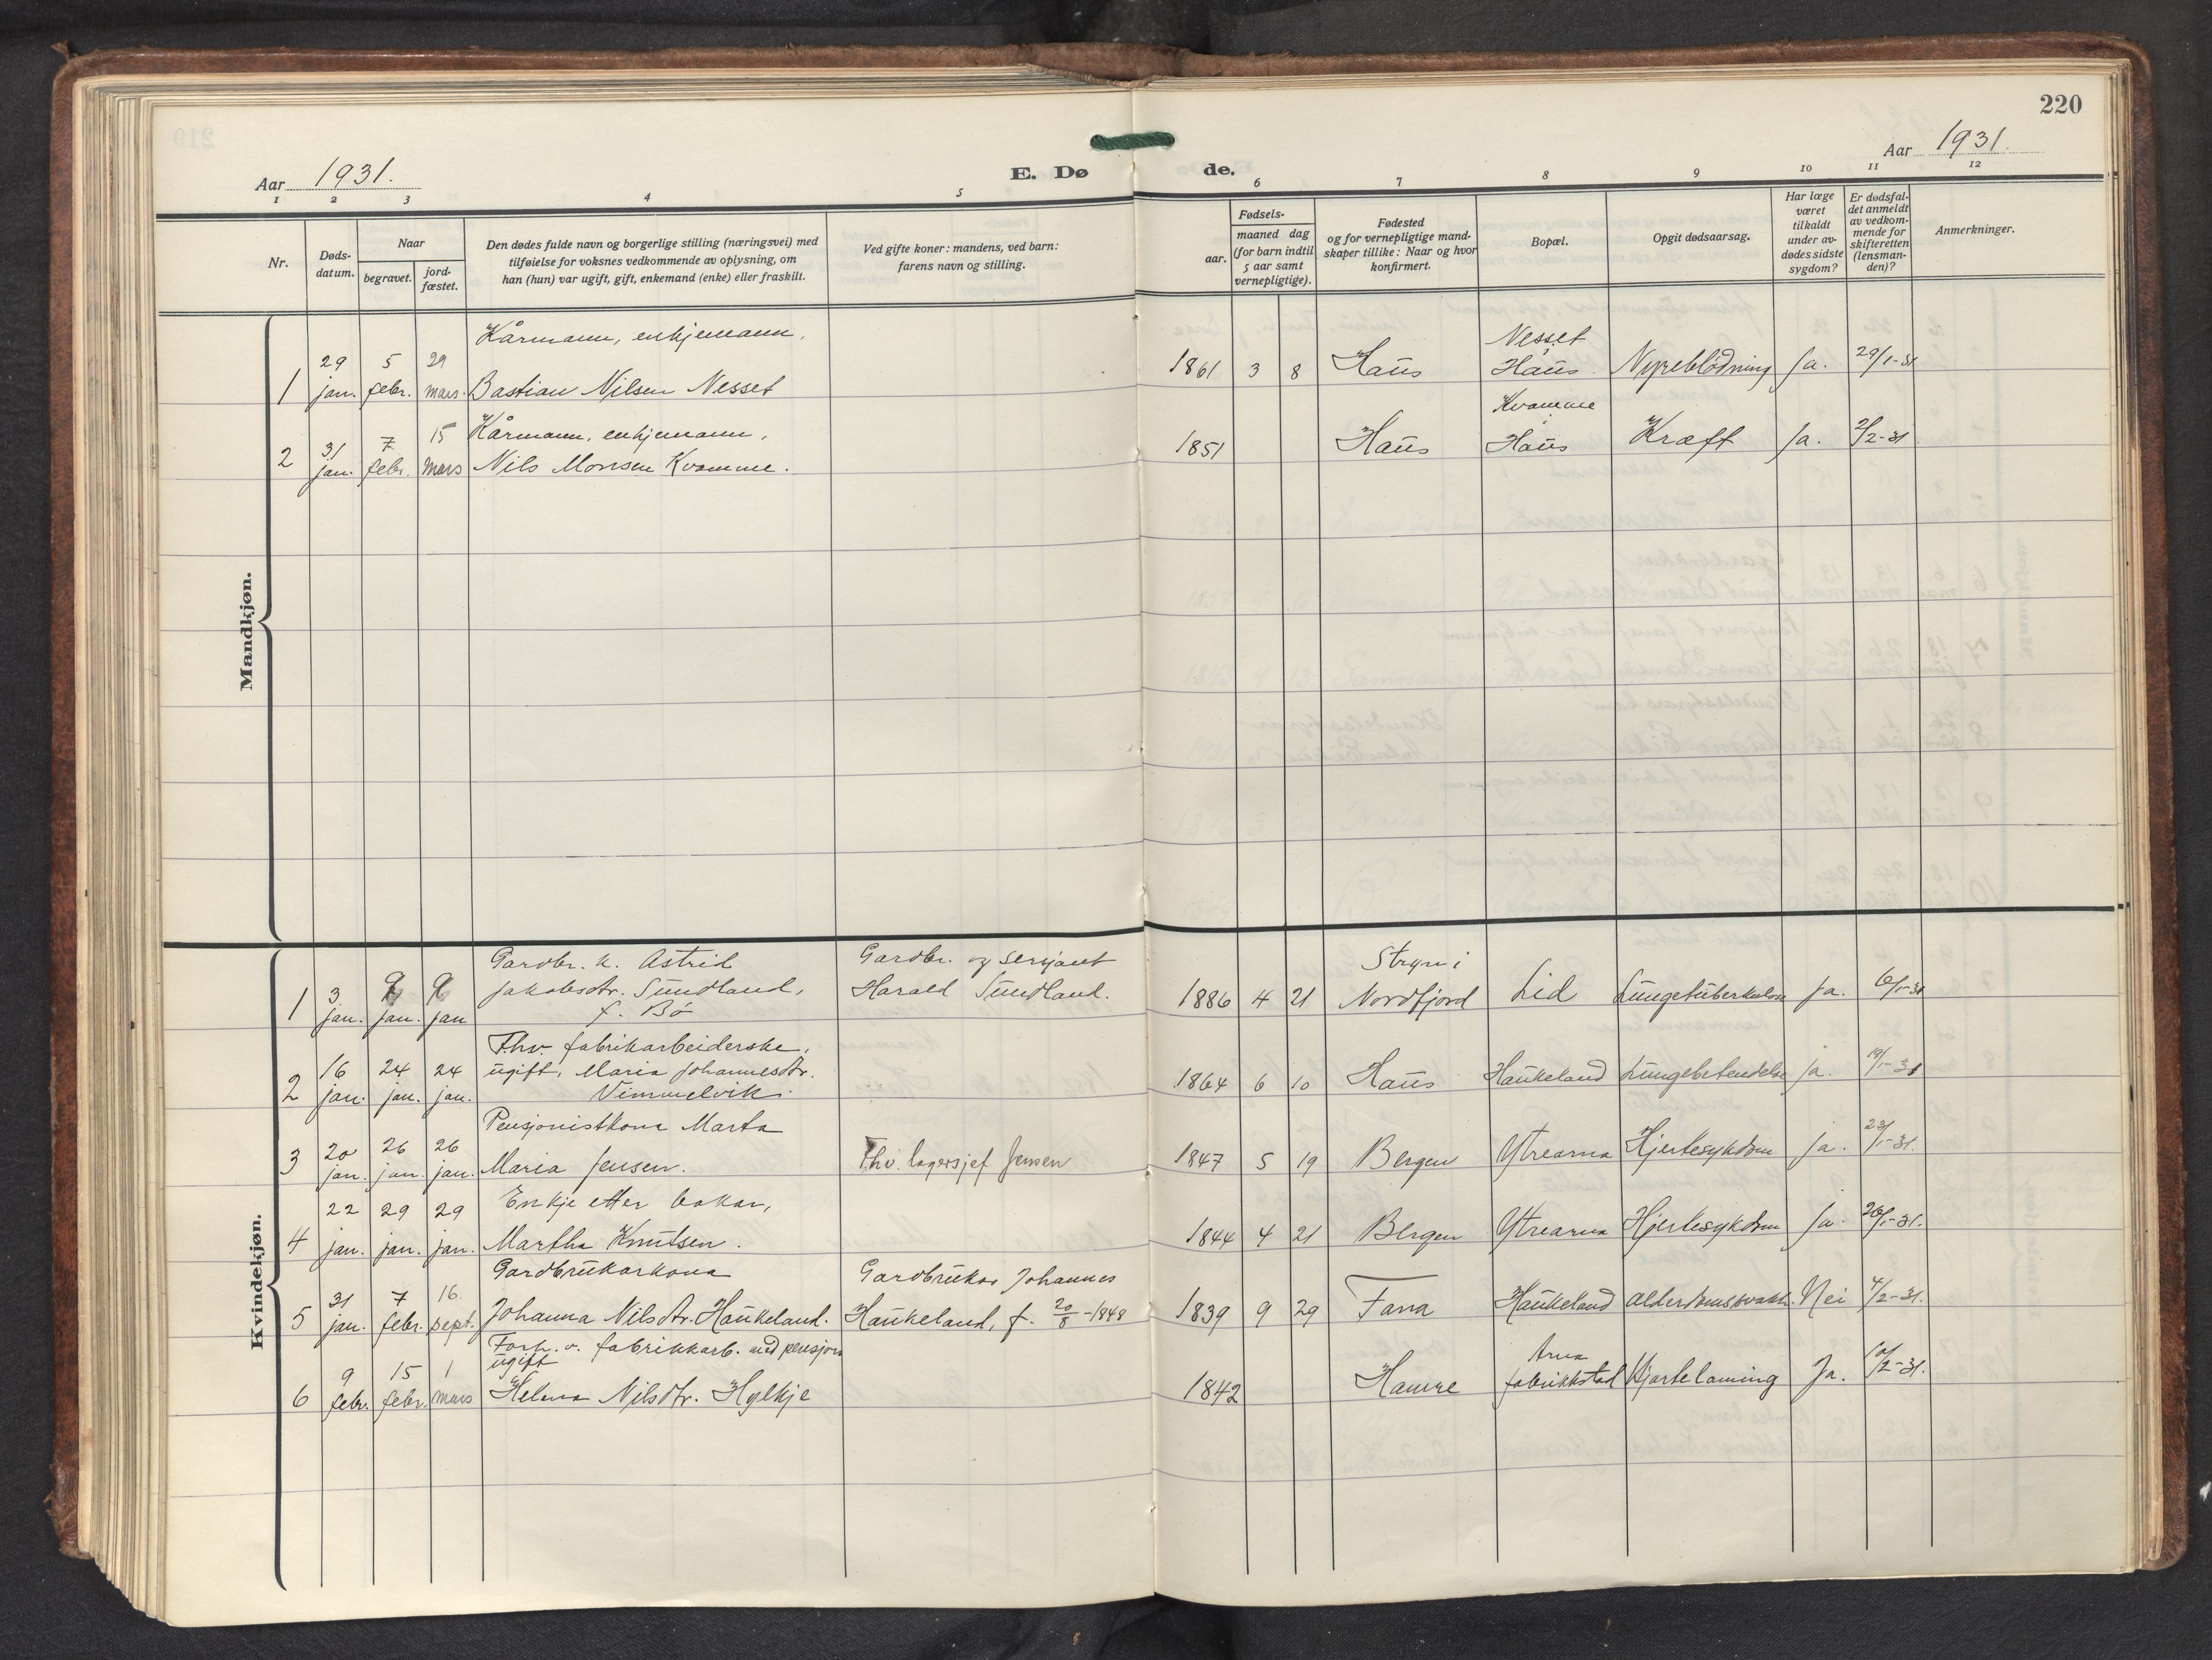 220
Aar 1931.
E. Døde.
Aar 1931.
1 2 3 4 5 6 7 8 9 10 11 12
Nr.
Døds-
datum.
Naar
begravet.
jord-
fæstet.
Den dødes fulde navn og borgerlige stilling (næringsvei) med
tilføielse for voksnes vedkommende av oplysning, om
han (hun) var ugift, gift, enkemand (enke) eller fraskilt.
Ved gifte koner: mandens, ved barn:
farens navn og stilling.
Fødsels-
aar.
maaned dag
(for barn indtil
5 aar samt
vernepligtige).
Fødested
og for vernepligtige mand-
skaper tillike: Naar og hvor
konfirmert.
Bopæl.
Opgit dødsaarsag.
Har læge
været
tilkaldt
under av-
dødes sidste
sygdom?
Er dødsfal-
det anmeldt
av vedkom-
mende for
skifteretten
(lensman-
den)?
Anmerkninger.
Mandkjøn.
Kårmann, enkjemann, Nesset
29 5 29 1861 3 8 Haus Haus Nyreblödning Ja. 29/1-31
1 jan. febr. mars. Bastian Nilsen Nesset
Kvamme
31 7 15 Kårmann, enkjemann, 1851 Haus Haus Kræft Ja. 2/2-31
2 jan. febr. mars Nils Monsen Kvamme.
Kvindekjøn.
Gardbr. k. Astrid Gardbr. og sersjant Stryn i
1 3. 9 9 Jakobsdtr. Sundland, Harald Sundland. 1886 4 21 Nordfjord Lid Lungetuberkulose Ja. 6/1-31
jan. jan. jan f. Bö
Fhv. fabrikarbeiderske,
16 24 24 ugift, Maria Johannesdtr. 1864 6 10 Haus Haukeland Lungebetendelse ja. 19/1-31
2 jan. jan. jan. Vimmelvik.
Pensjonistkona Marta
3 20 26 26 Fhv. lagersjef Jensen 1847 5 19 Bergen Ytrearna Hjertesykdom ja. 23/1-31.
jan. jan. jan. Maria Jensen.
22 29 29 Enkje etter bakar,
4 jan. jan. jan. Martha Knutsen. 1844 4 21 Bergen Ytrearna Hjertesykdom ja. 26/1-31.
Gardbrukarkona Gardbrukar Johannes
31 7 16
5 jan. febr. sept. Johanna Nilsdtr. Haukeland. Haukeland, f. 20/8-1848 1839 9 29 Fana Haukeland Nei 4/2-31.
Forh. v. fabrikkarb. med pensjon
9 15 1 ugift Arna
6 febr. febr. mars Helena Nilsdtr. Hylkje 1842 Hamre fabrikkstad Hjartelaming Ja. 10/2-31.